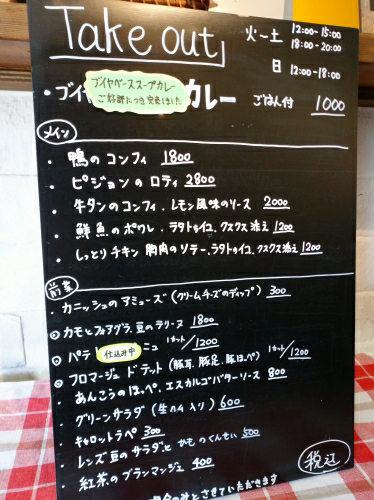 Take out
火ー土 12:00-15:00
18:00-20:00
日 12:00-18:00
ブイヤベーススープカレー
ご好評につき完売しました
・ブイヤ カレー ごはん付 1000
メイン
・鴨のコンフィ 1800
・ピジョンのロティ 2800
・牛タンのコンフィ、レモン風味のソース 2000
・鮮魚のポワレ、ラタトゥイユ、クスクス添え 1200
・しっとりチキン胸肉のソテー、ラタトゥイユ、クスクス添え 1200
前菜
・カニッシュのアミューズ(クリームチーズのディップ) 300
カモとフォアグラ、豆のテリーヌ 1800
パテ 仕込み中 ニュ 1カット/1200
フロマージュ ド テット(豚耳、豚足、豚ほっぺ) 1カット/1200
・あんこうのほっぺ、エスカルゴバターソース 800
・グリーンサラダ(生ハム入り) 600
・キャロットラペ 300
・レンズ豆のサラダと かものくんせい 500
・紅茶のブランマンジェ 400
税込
のみとさせていただきます